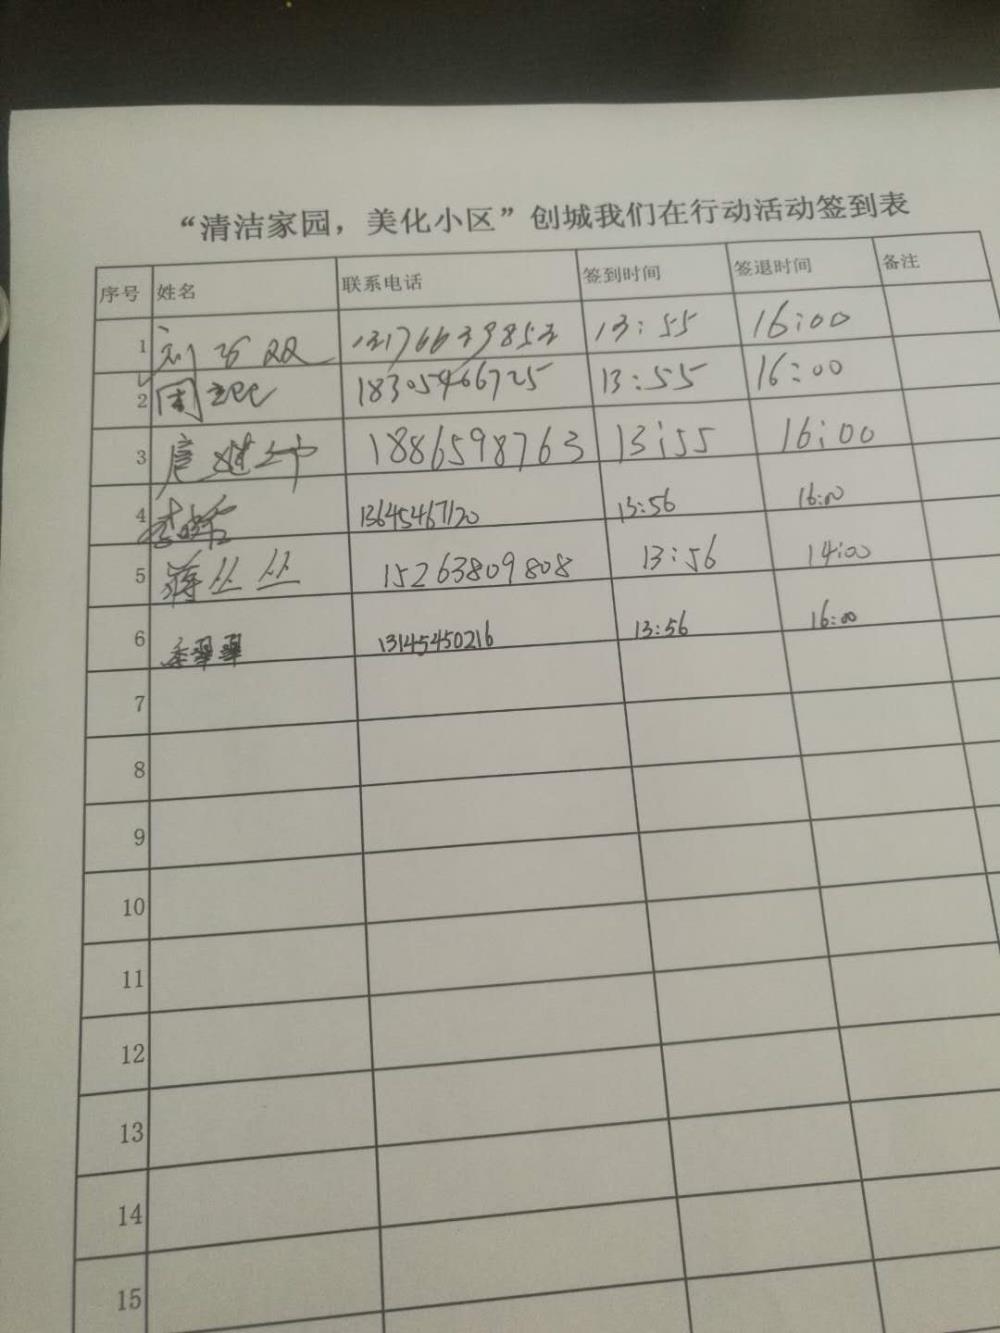 “清洁家园，美化小区”创城我们在行动活动签到表
序号 姓名 联系电话 签到时间 签退时间 备注
1 刘 双 13176639853 13:55 16:00
2 周 18305466725 13:55 16:00
3 唐建华 1886598763 13:55 16:00
4 李 13645467120 13:56 16:00
5 蒋丛丛 15263809808 13:56 14:00
6 季翠翠 13145450216 13:56 16:00
7
8
9
10
11
12
13
14
15